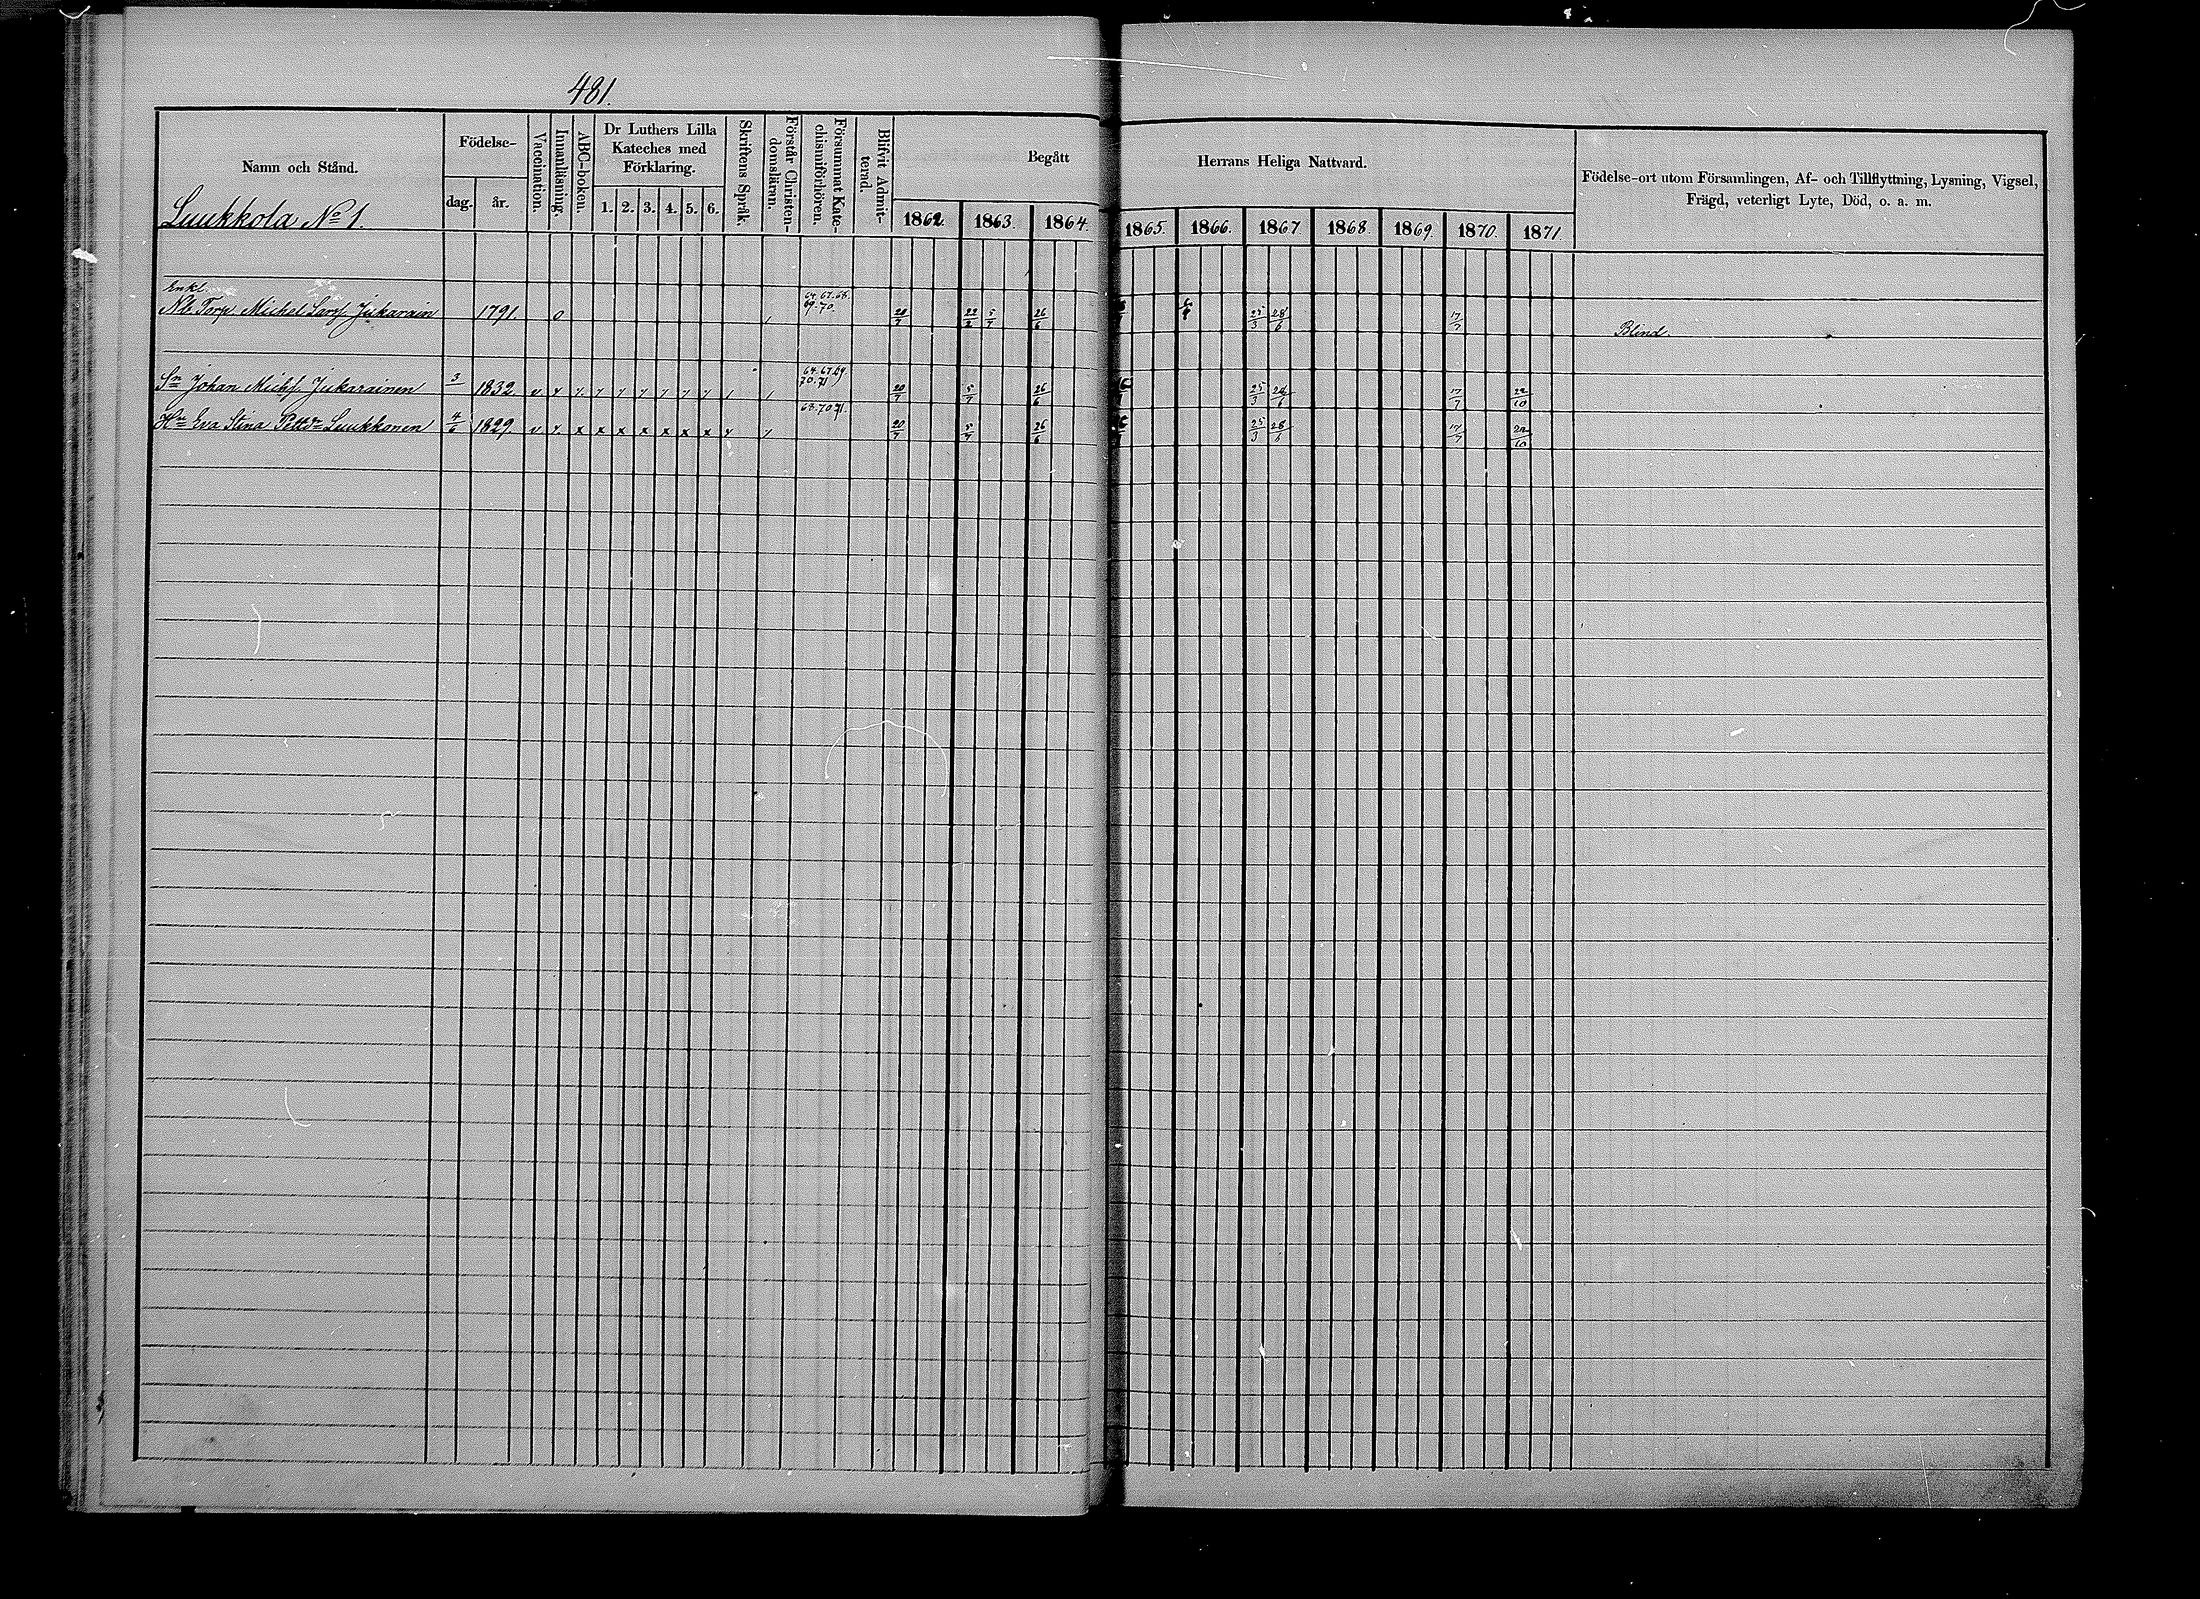 481.
Namn och Stånd.
Födelse-
dag. år.
Vaccination.
Innanläsning.
ABC-boken.
Dr Luthers Lilla
Kateches med
Förklaring.
1. 2. 3. 4. 5. 6.
Skriftens Språk.
Förstår Christen-
domsläran.
Försummat Kate-
chismiförhören.
Blifvit Admit-
terad.
Begått
Herrans Heliga Nattvard.
1862. 1863. 1864. 1865. 1866. 1867 1868 1869. 1870. 1871
Födelse-ort utom Församlingen, Af- och Tillflyttning, Lysning, Vigsel,
Frägd, veterligt Lyte, Död, o. a. m.
Luukkola No 1.
Enkl.
Torp. Michel Larsf. Jukarain 1791. 0 69.70. 20/7 22/2 5/7 26/6 25/3 28/6 17/7 Blind.
Sn Johan Michf. Jukarainen 3 1832. 64.67.69 70.71 20/7 5/7 26/6 25/3 28/6 17/7 22/10
Hu Eva Stina Pettdr Luukkonen 4/6 1829. v x x x x x x x 68.70.71. 20/7 5/7 26/6 25/3 28/6 17/7 22/10